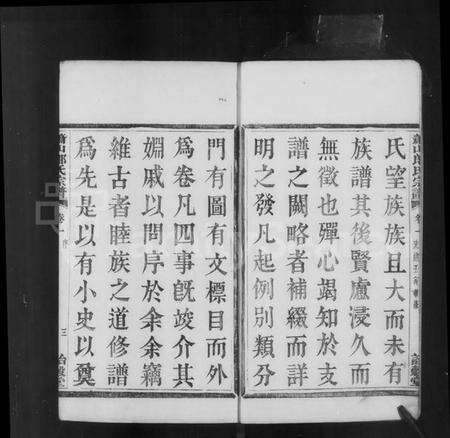 氏望族族且大而未有
族譜其後賢慮浸久而
無徵也殫心竭知於支
譜之闕略者補綴而詳
明之發凡起例別類分
門有圖有文標目而外
爲卷凡四事旣竣介其
姻戚以問序於余余竊
維古者睦族之道修譜
爲先是以有小史以奠
蕭山郎氏宗譜
卷一
三